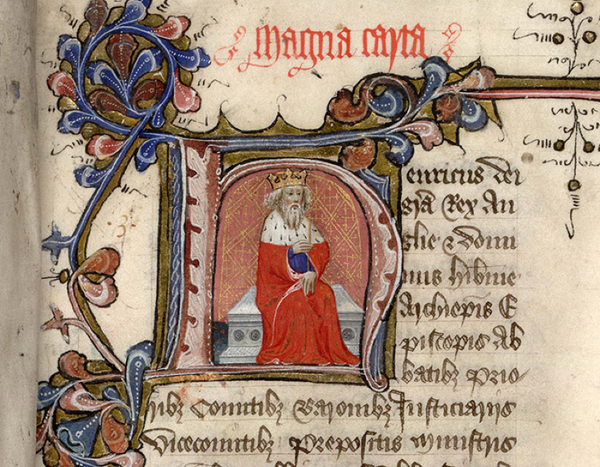 Magna carta
Henricus dei
gr̄a Rex An
glie & domi
nus hib̄nie
Archiep̄is E
piscopis Ab
batibꝫ Prio
ribꝫ Comitibꝫ Baronibꝫ Justiciariis
Vicecomitibꝫ Prepositis Ministris